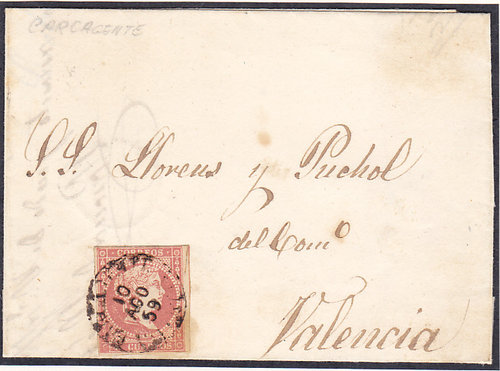 CARCAGENTE
S.S. Llorens y Puchol
del Com.º
Valencia
CORREOS
10
AGO
59